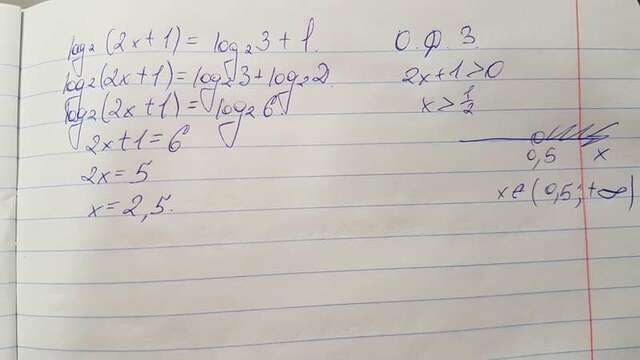 log₂(2x+1)=log₂3+1.
log₂(2x+1)=log₂3+log₂2
log₂(2x+1)=log₂6
2x+1=6
2x=5
x=2,5.
О.Ф.З.
2x+1>0
x>1/2
0,5 x
x∈(0,5;+∞)